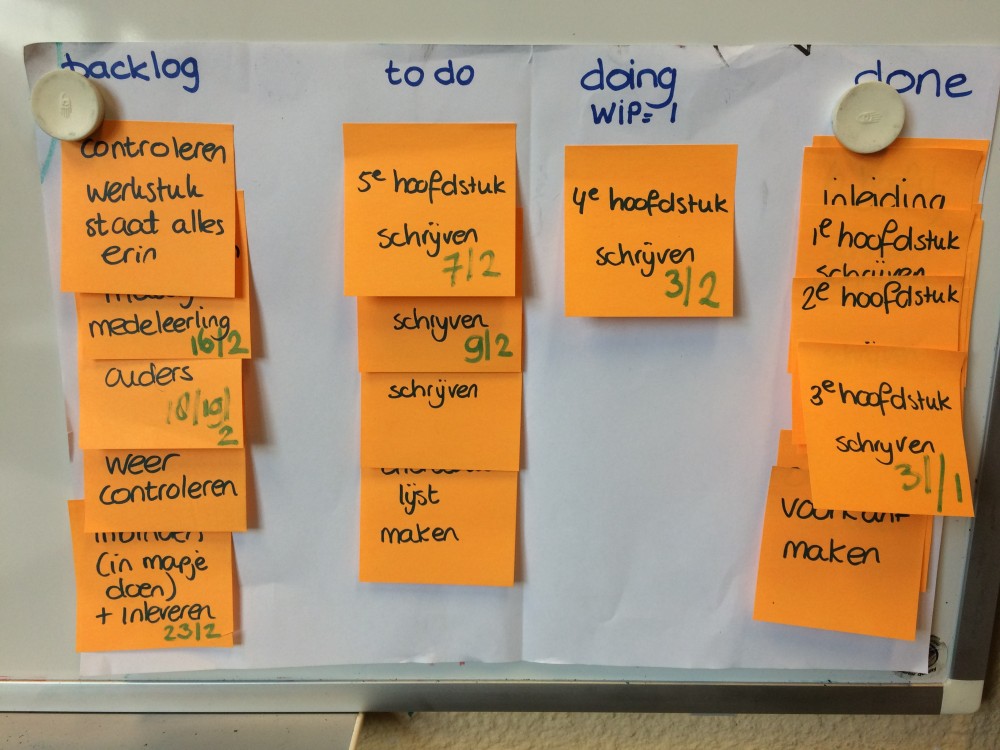 backlog
controleren
werkstuk
staat alles
erin
medeleerling
16/2
ouders
18/19/
2
weer
controleren
(in mapje
doen)
+ inleveren
23/2
to do
5e hoofdstuk
schrijven
7/2
schryven
9/2
schrijven
lijst
maken
doing
WIP= 1
4e hoofdstuk
schrijven
3/2
done
inleiding
1e hoofdstuk
schrijven
2e hoofdstuk
3e hoofdstuk
schryven
31/1
voorkant
maken